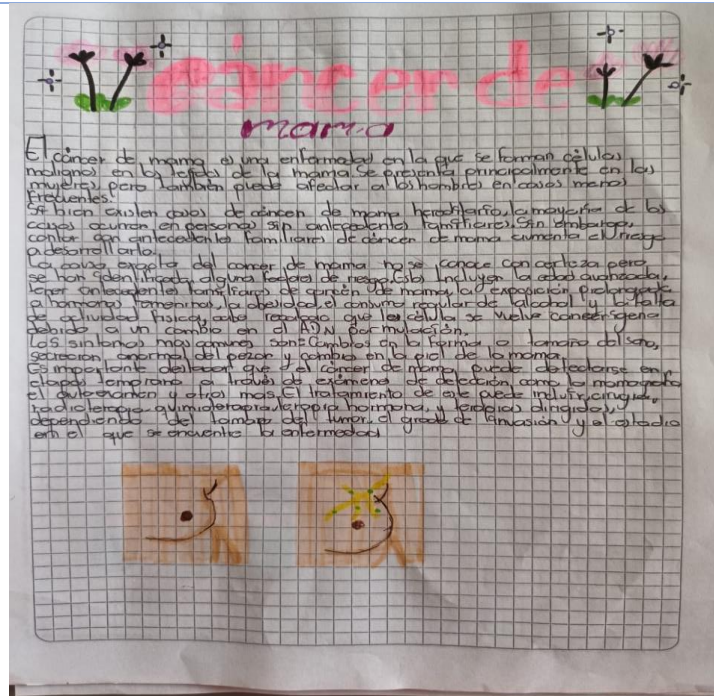 cáncer de
mama
El cáncer de mama es una enfermedad en la que se forman células
malignas en los tejidos de la mama. Se presenta principalmente en las
mujeres, pero también puede afectar a los hombres en casos menos
frecuentes.
Si bien existen casos de cáncer de mama hereditario, la mayoría de los
casos ocurren en personas sin antecedentes familiares. Sin embargo,
contar con antecedentes familiares de cáncer de mama aumenta el riesgo
a desarrollarlo.
La causa exacta del cancer de mama no se conoce con certeza pero
se han identificado de riesgo. Esto incluyen la edad avanzada,
tener antecedentes familiares de cancer de mama, la exposición prolongada
a hormonas femeninas, la obesidad, el consumo regular de alcohol y la falta
de actividad física, cabe que la célula se vuelve
debido a un cambio en el ADN por mutación.
Los sintomas mas comunes son: Cambios en la forma o tamaño del seno,
secreción anormal del pezon y cambio en la piel de la mama.
Es importante destacar que el cáncer de mama puede detectarse en
etapas temprana a través de exámenes de detección como la mamografía
el autoexamen y otros mas. El tratamiento de este puede incluir, cirugía,
radioterapia, quimioterapia, terapia hormona, y terapias dirigidas,
dependiendo del tamaño del tumor, el grado de invasión y el estadio
en el que se encuentre la enfermedad